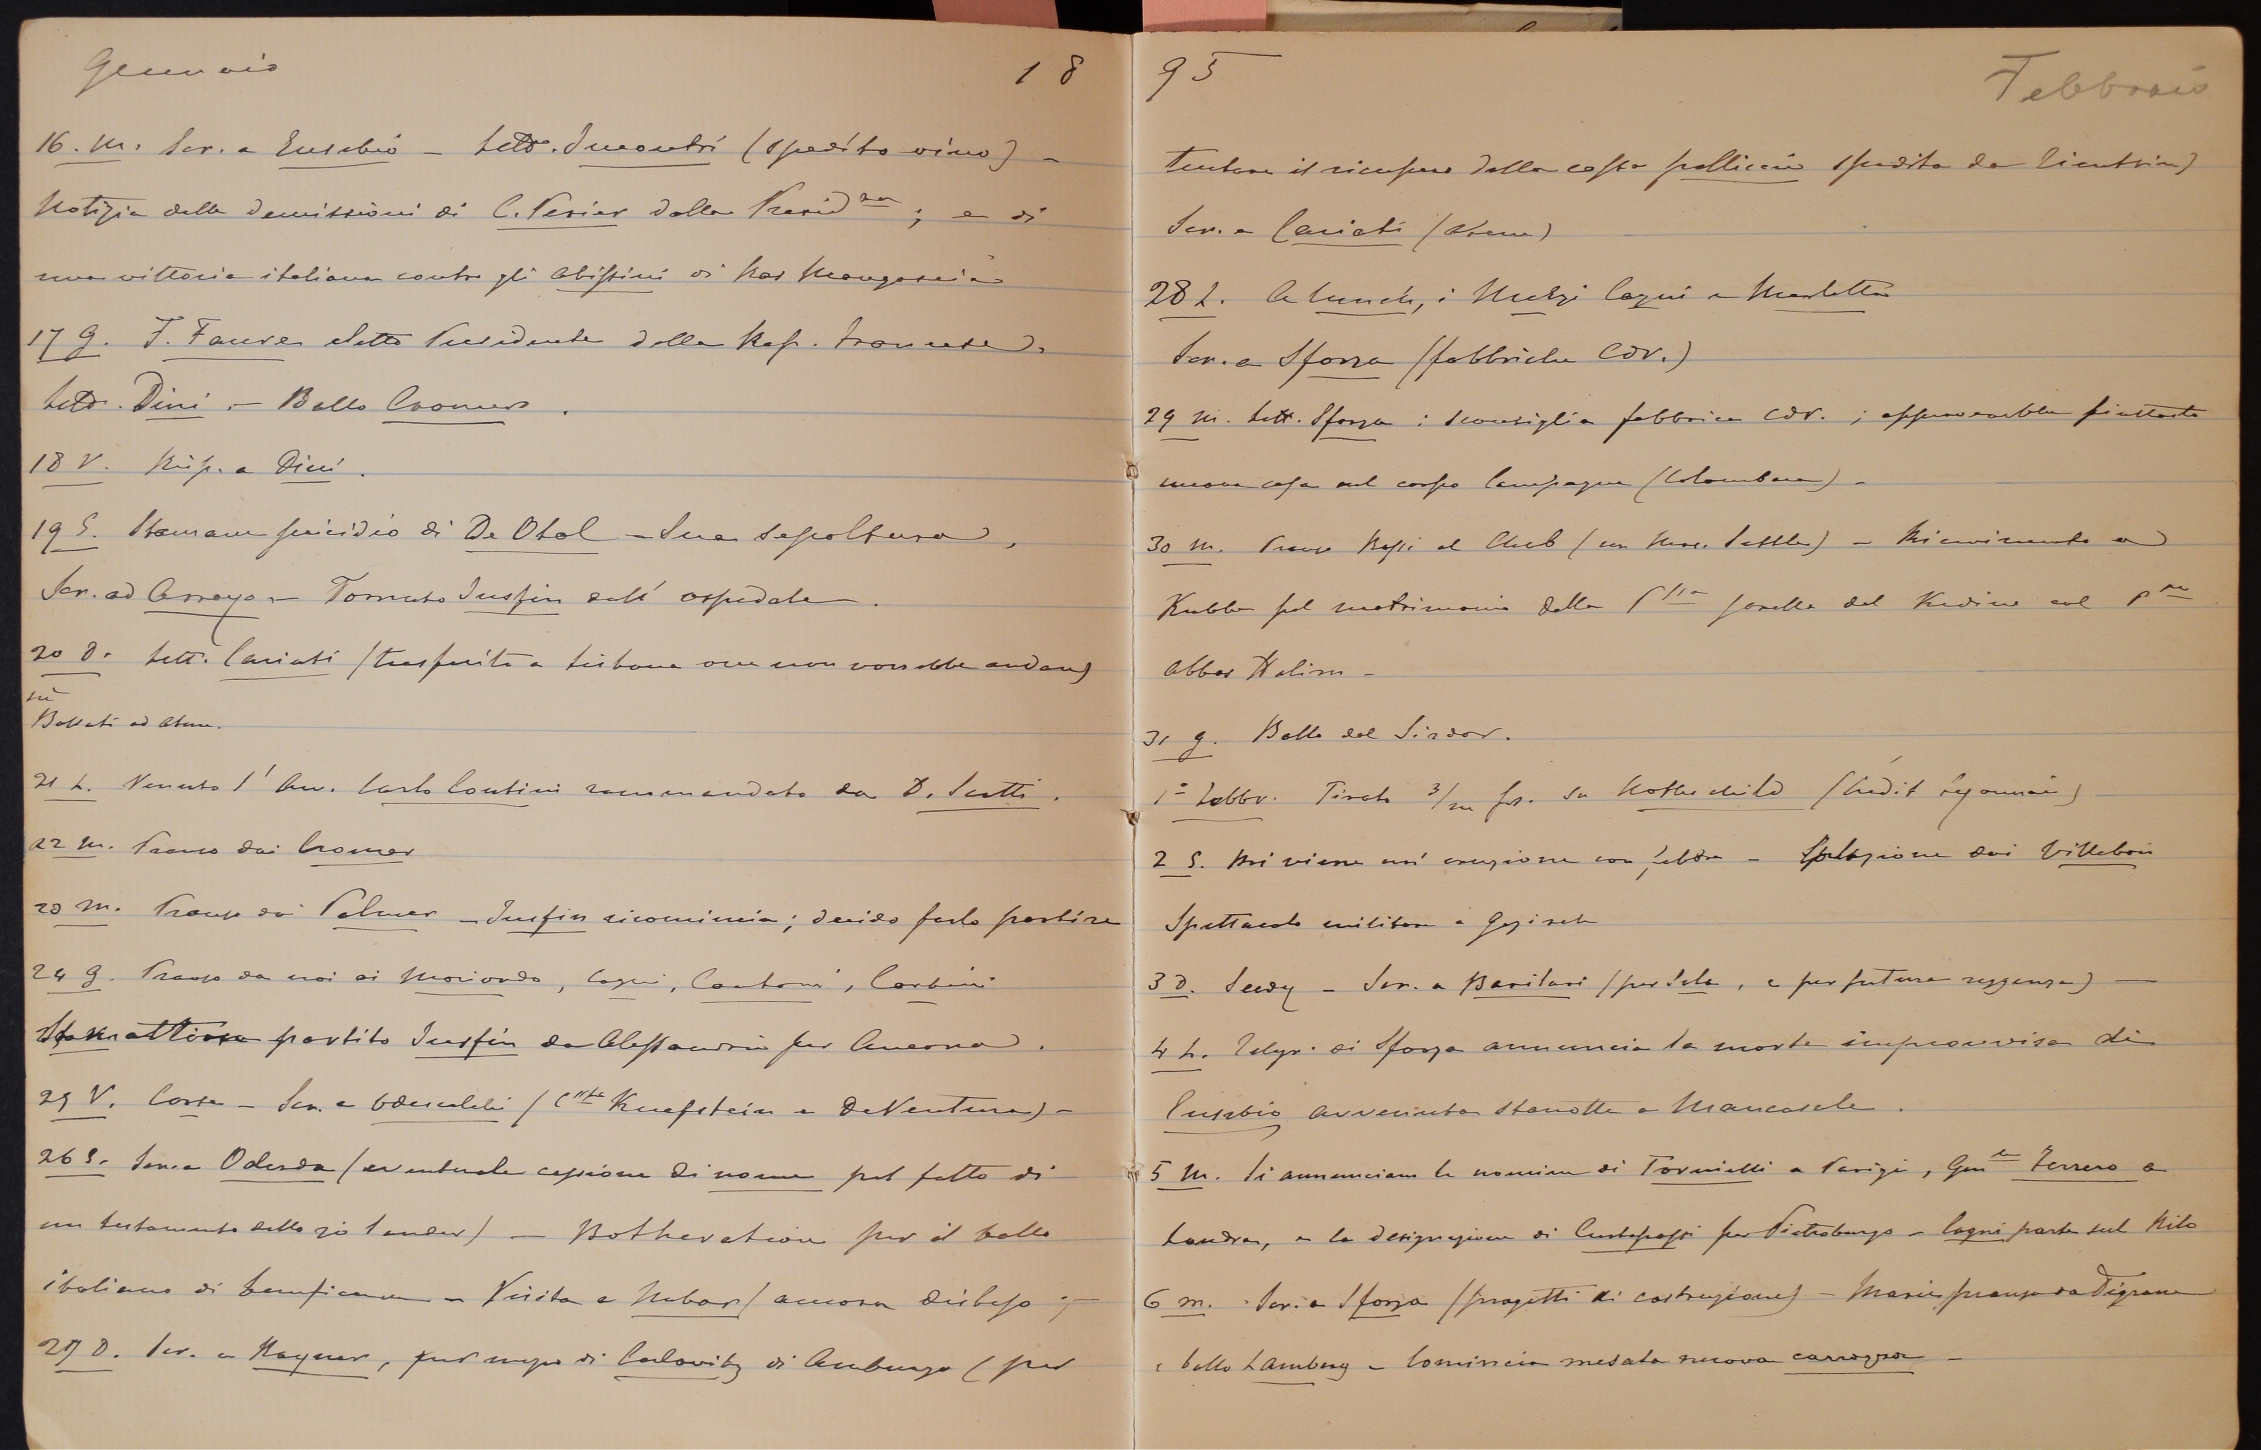 Gennaio 18
16. M. Scr. a Eusebio - Lett. Incontri (spedito vino) -
Notizia delle demissioni di C. Perier dalla Presid za; e di
una vittoria italiana contro gli abissini di Ras Mangascià
17 G. F. Faure eletto Presidente della Rep. francese.
Lett. Dini. - Ballo Cromer.
18 V. Risp. a Dini.
19 S. Stamane suicidio di De Otal - Sua sepoltura.
Scr. ad Arroyo - Tornato Jusfin dall' ospedale.
20 D. Lett. Cariati (trasferito a Lisbona ove non vorrebbe andare)
Bollati ad Atene.
21 L. Venuto l' Avv. Carlo Contini raccomandato da D. Scotti.
22 M. Pranzo dai Cromer
23 M. Pranzo dai Palmer - Jusfin ricomincia; decido farlo partire
24 G. Pranzo da noi ai Moriondo, Cagni, Cantoni, Corbini
Stamattina partito Jusfin da Alessandria per Ancona.
25 V. Corse - Scr. a Odescalchi (C Kuefstein e De Ventura) -
26 S. Scr. a Oderda (eventuale cessione di nome pel fatto di
un testamento dello zio) - Botheration per il ballo
italiano di beneficenza - Visita a Nubar (ancora
27 D. Scr. a Wagner, pur mezzo di Carlowitz di Amburgo (per
95 Febbraio
tentare il ricupero della cassa pelliccie spedita da Tientsin)
Scr. a Cariati (Atene)
28 L. A lunch, i Cagni e
Scr. a Sforza (fabbriche Cdr.)
29 M. Lett. Sforza: sconsiglia fabbrica Cdr.; approverebbe piuttosto
nuova casa sul corpo Campagna (Colombara) -
30 M. Pranzo al Club - Ricevimento a
Kubbe pel matrimonio della P ssa sorella del Kedive col P pe
Abbas Halim -
31 G. Ballo del Sirdar.
1° Febbr. Tirato 3/m frs. su Rothschild (Crédit Lyonnais)
2 S. Mi viene un' eruzione con febbre - dai Villebois
Spettacolo militare a Gezireh
3 D. Seedy - Scr. a Barilari (per Sola, e per futura reggenza) -
4 L. Telegr. di Sforza annuncia la morte improvvisa di
Eusebio avvenuta stanotte a Mancasale.
5 M. Si annunciano le nomine di Tornielli a Parigi, Gen le Ferrero a
Londra, e la designazione di Curtopassi per Pietroburgo - Cagni parte sul Nilo
6 M. Scr. a Sforza (progetti di costruzione) - pranzo da Tigrane
e ballo Lamberg - Comincia mesata nuova carrozza -